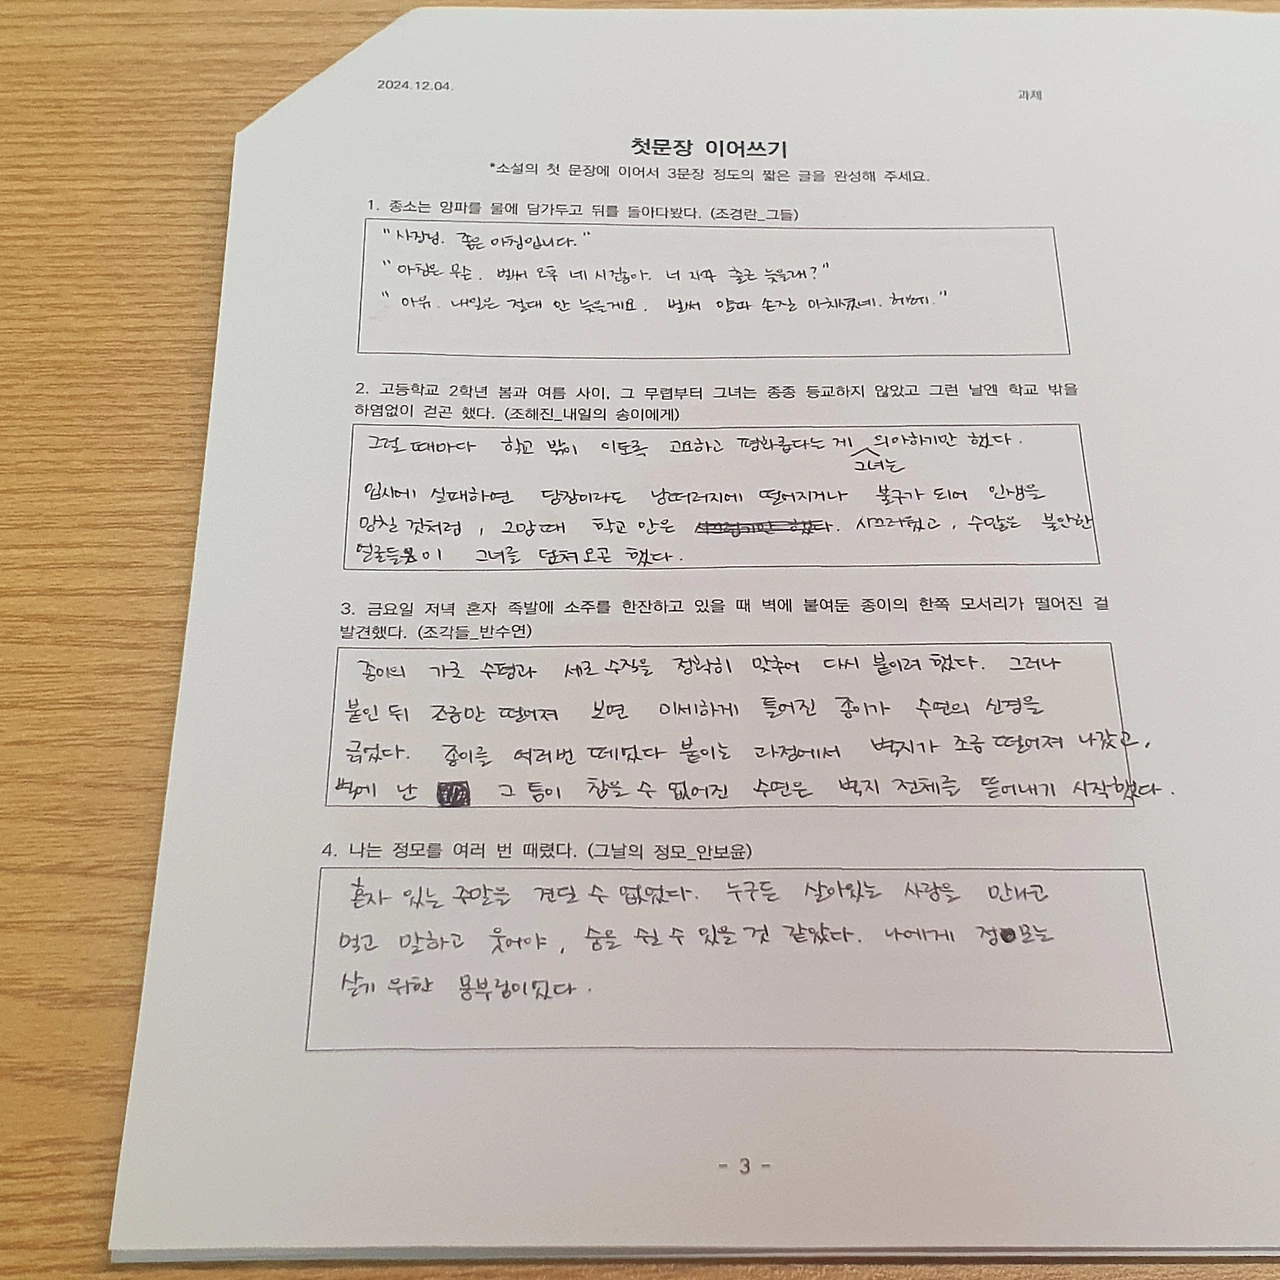 2024.12.04.
과제
첫문장 이어쓰기
*소설의 첫 문장에 이어서 3문장 정도의 짧은 글을 완성해 주세요.
1. 종소는 양파를 물에 담가두고 뒤를 돌아다봤다. (조경란_그들)
"사장님. 좋은 아침입니다."
"아침은 무슨. 벌써 오후 네 시잖아. 너 자꾸 출근 늦을래?"
"아유. 내일은 절대 안 늦을게요. 벌써 양파 손질 마치셨네. 헤헤."
2. 고등학교 2학년 봄과 여름 사이, 그 무렵부터 그녀는 종종 등교하지 않았고 그런 날엔 학교 밖을
하염없이 걷곤 했다. (조해진_내일의 송이에게)
그럴 때마다 학교 밖이 이토록 고요하고 평화롭다는 게 그녀는 의아하기만 했다.
입시에 실패하면 당장이라도 낭떠러지에 떨어지거나 불구가 되어 인생을
망칠 것처럼, 그맘때 학교 안은 시끄러웠고, 수많은 불안한
얼굴들이 그녀를 덮쳐오곤 했다.
3. 금요일 저녁 혼자 족발에 소주를 한잔하고 있을 때 벽에 붙여둔 종이의 한쪽 모서리가 떨어진 걸
발견했다. (조각들_반수연)
종이의 가로 수평과 세로 수직을 정확히 맞추어 다시 붙이려 했다. 그러나
붙인 뒤 조금만 떨어져 보면 미세하게 틀어진 종이가 수연의 신경을
긁었다. 종이를 여러번 떼었다 붙이는 과정에서 벽지가 조금 떨어져 나갔고,
벽에 난 그 틈이 참을 수 없어진 수연은 벽지 전체를 뜯어내기 시작했다.
4. 나는 정모를 여러 번 때렸다. (그날의 정모_안보윤)
혼자 있는 주말을 견딜 수 없었다. 누구든 살아있는 사람을 만나고
먹고 말하고 웃어야, 숨을 쉴 수 있을 것 같았다. 나에게 정모는
살기 위한 몸부림이었다.
- 3 -